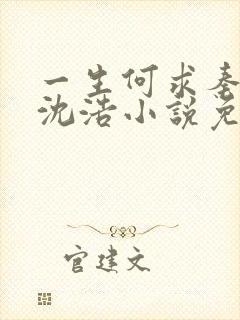 一生何求秦
沈浩小说免
官建文